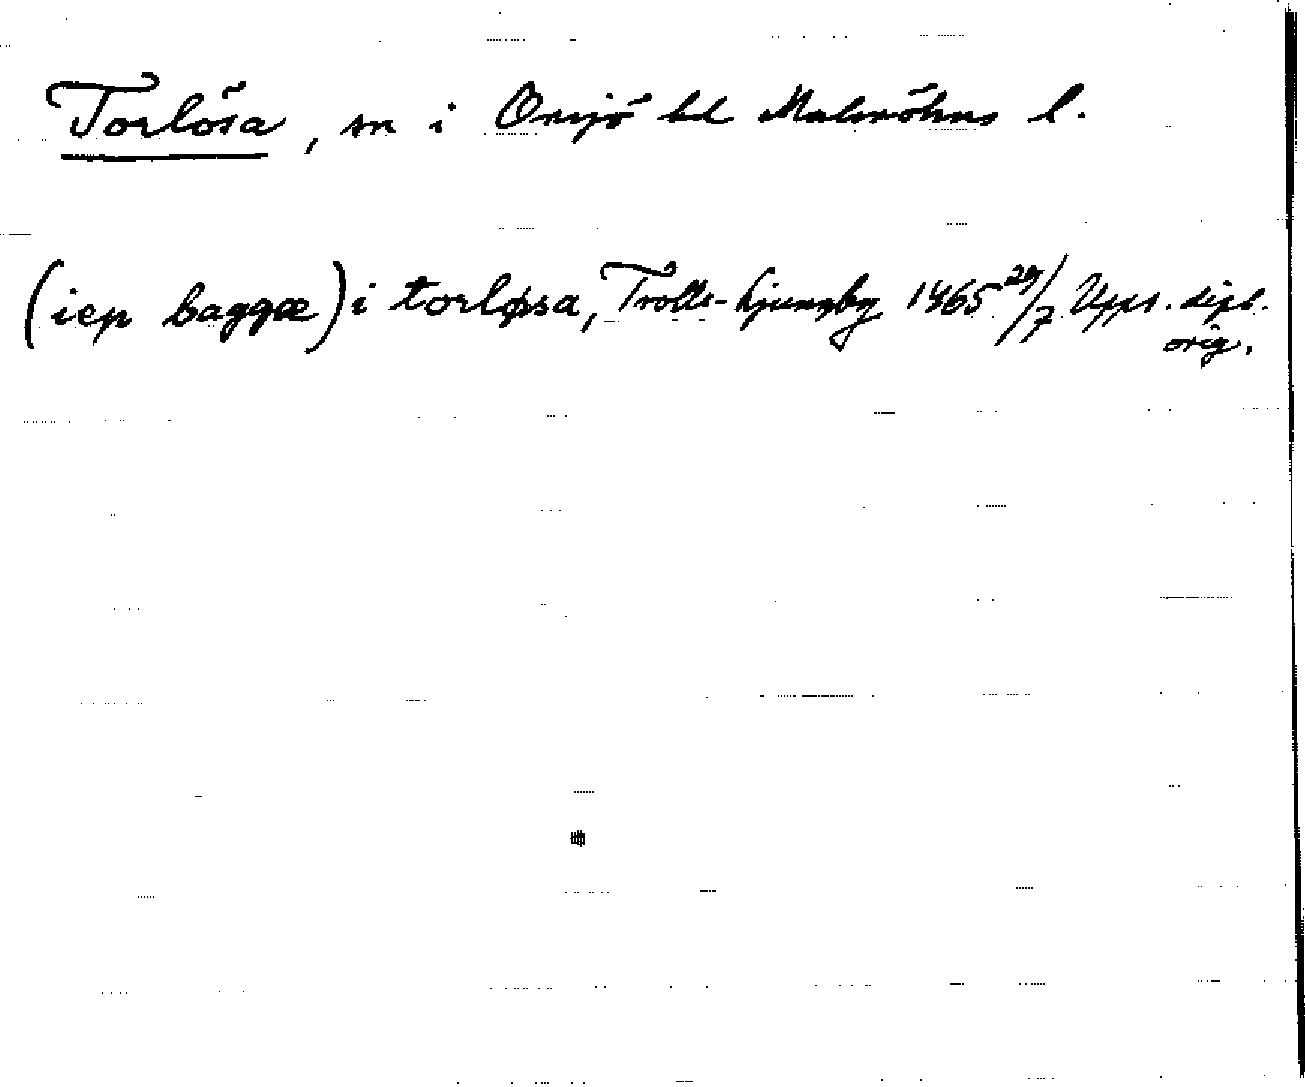 Torlösa, sn i Onsjö hd Malmöhus l.
(iep baggæ) i torløsa, Trolle-Ljungby 1465 29/7 Upps. dipl.
orig.